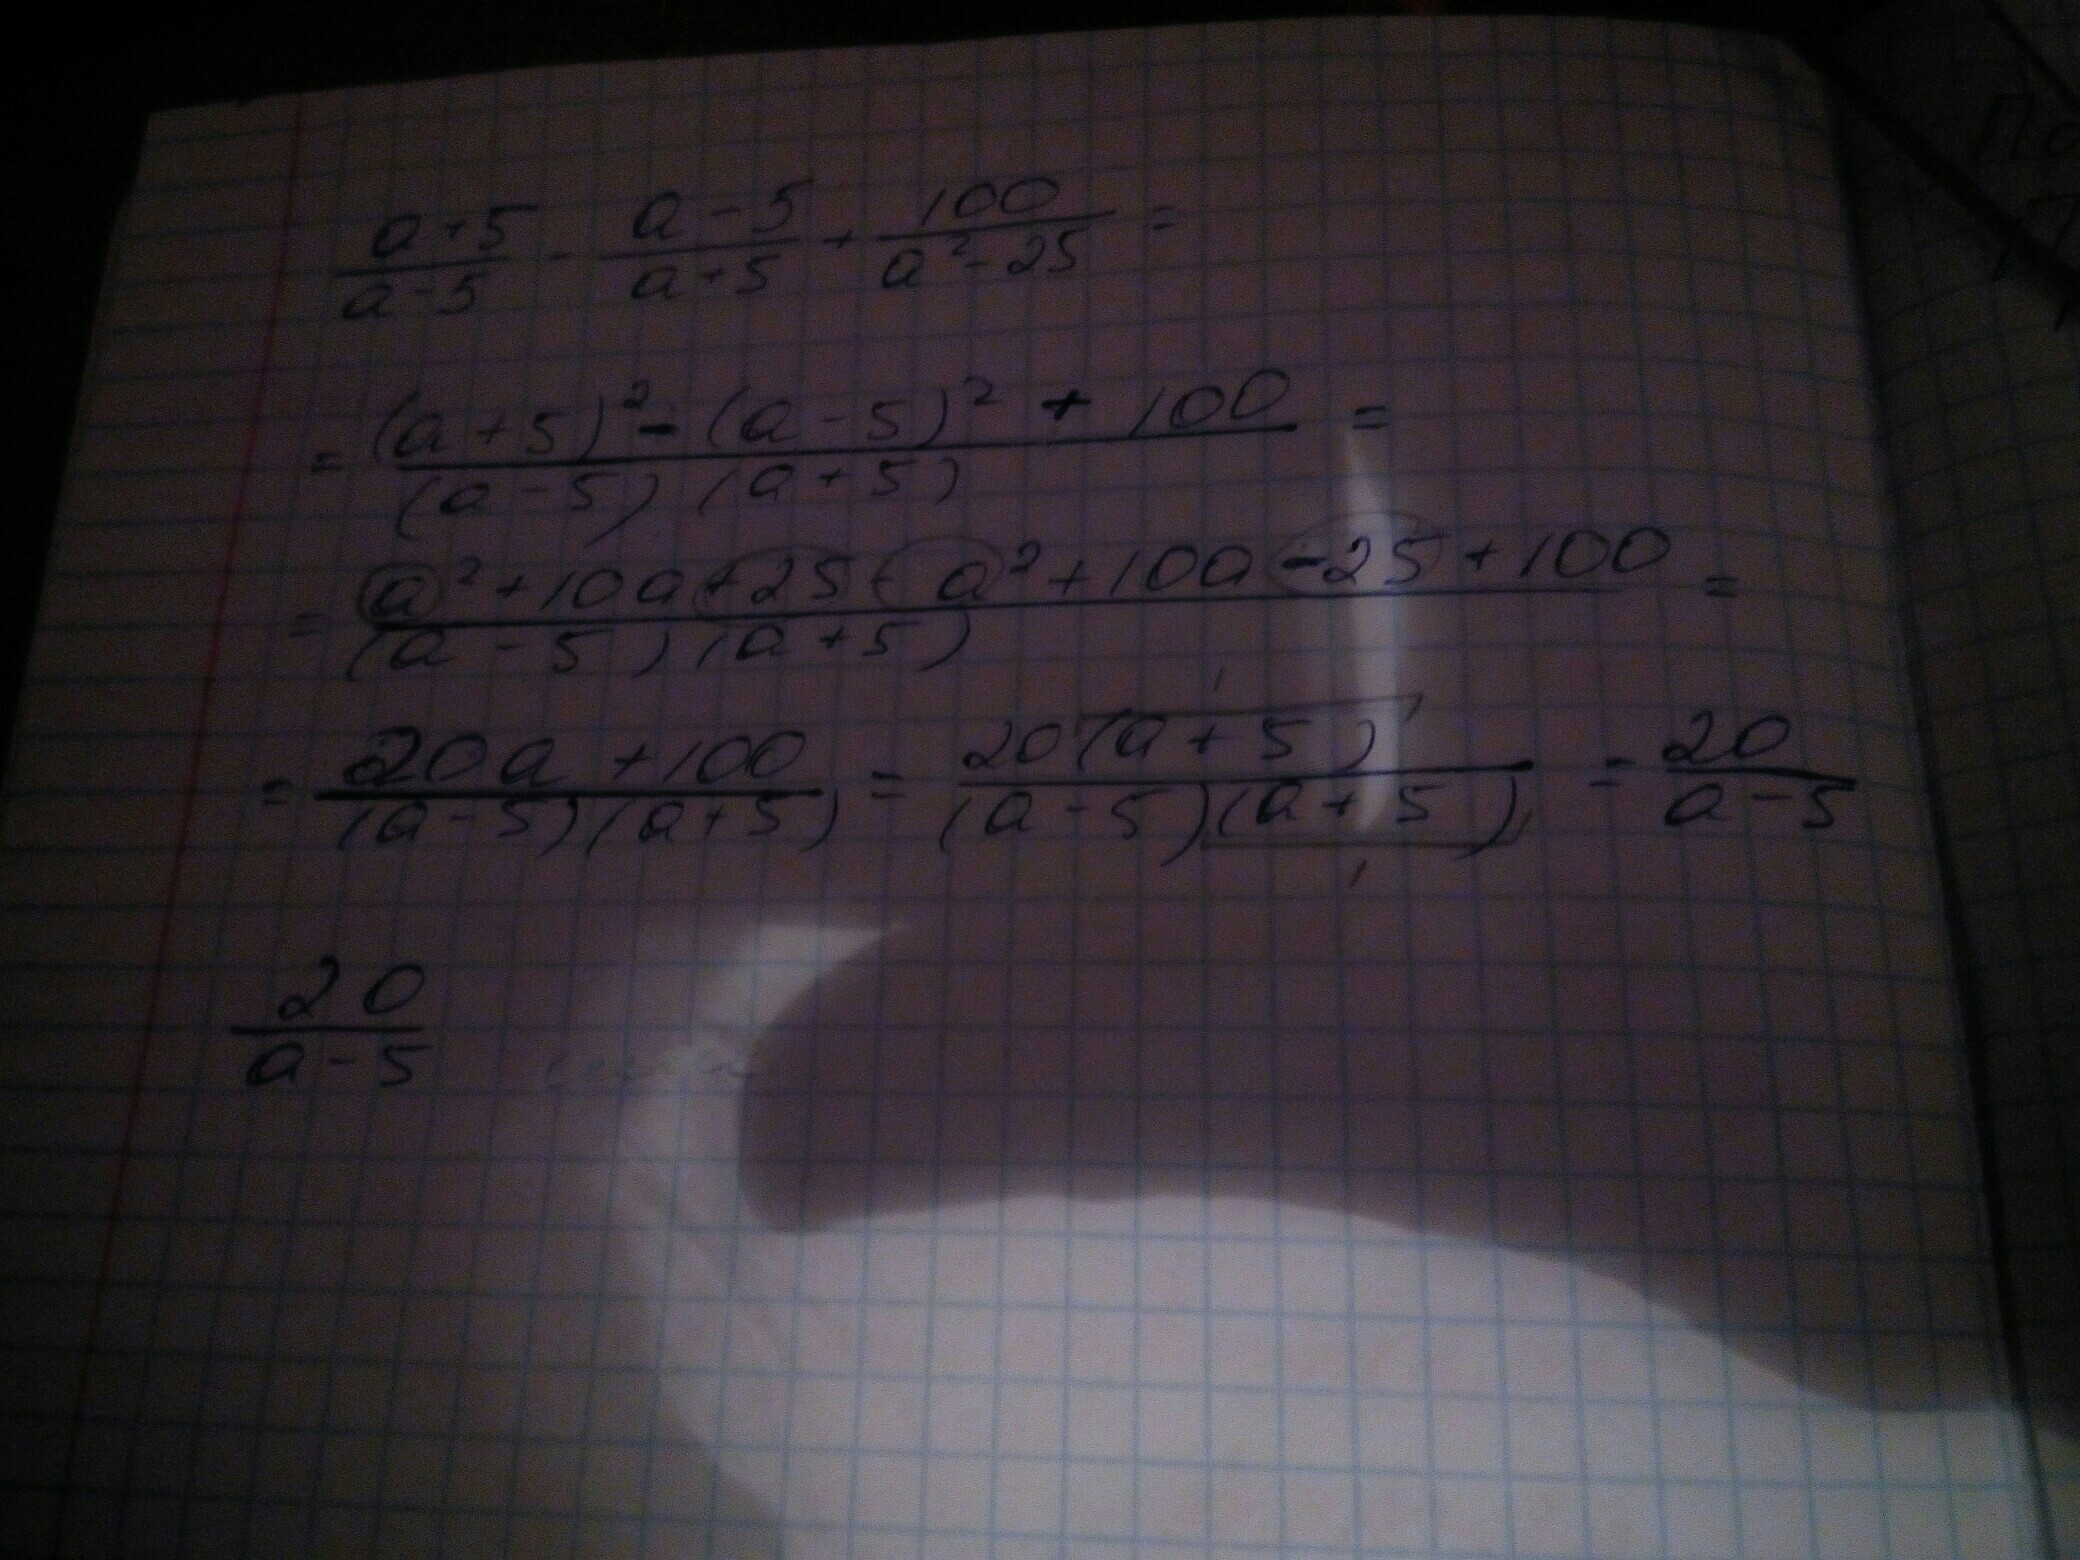 (a+5)/(a-5) - (a-5)/(a+5) + 100/(a²-25) =
= ((a+5)² - (a-5)² + 100)/((a-5)(a+5)) =
= (a²+10a+25-a²+10a-25+100)/((a-5)(a+5)) =
= (20a+100)/((a-5)(a+5)) = 20(a+5)/((a-5)(a+5)) = 20/(a-5)
20/(a-5)